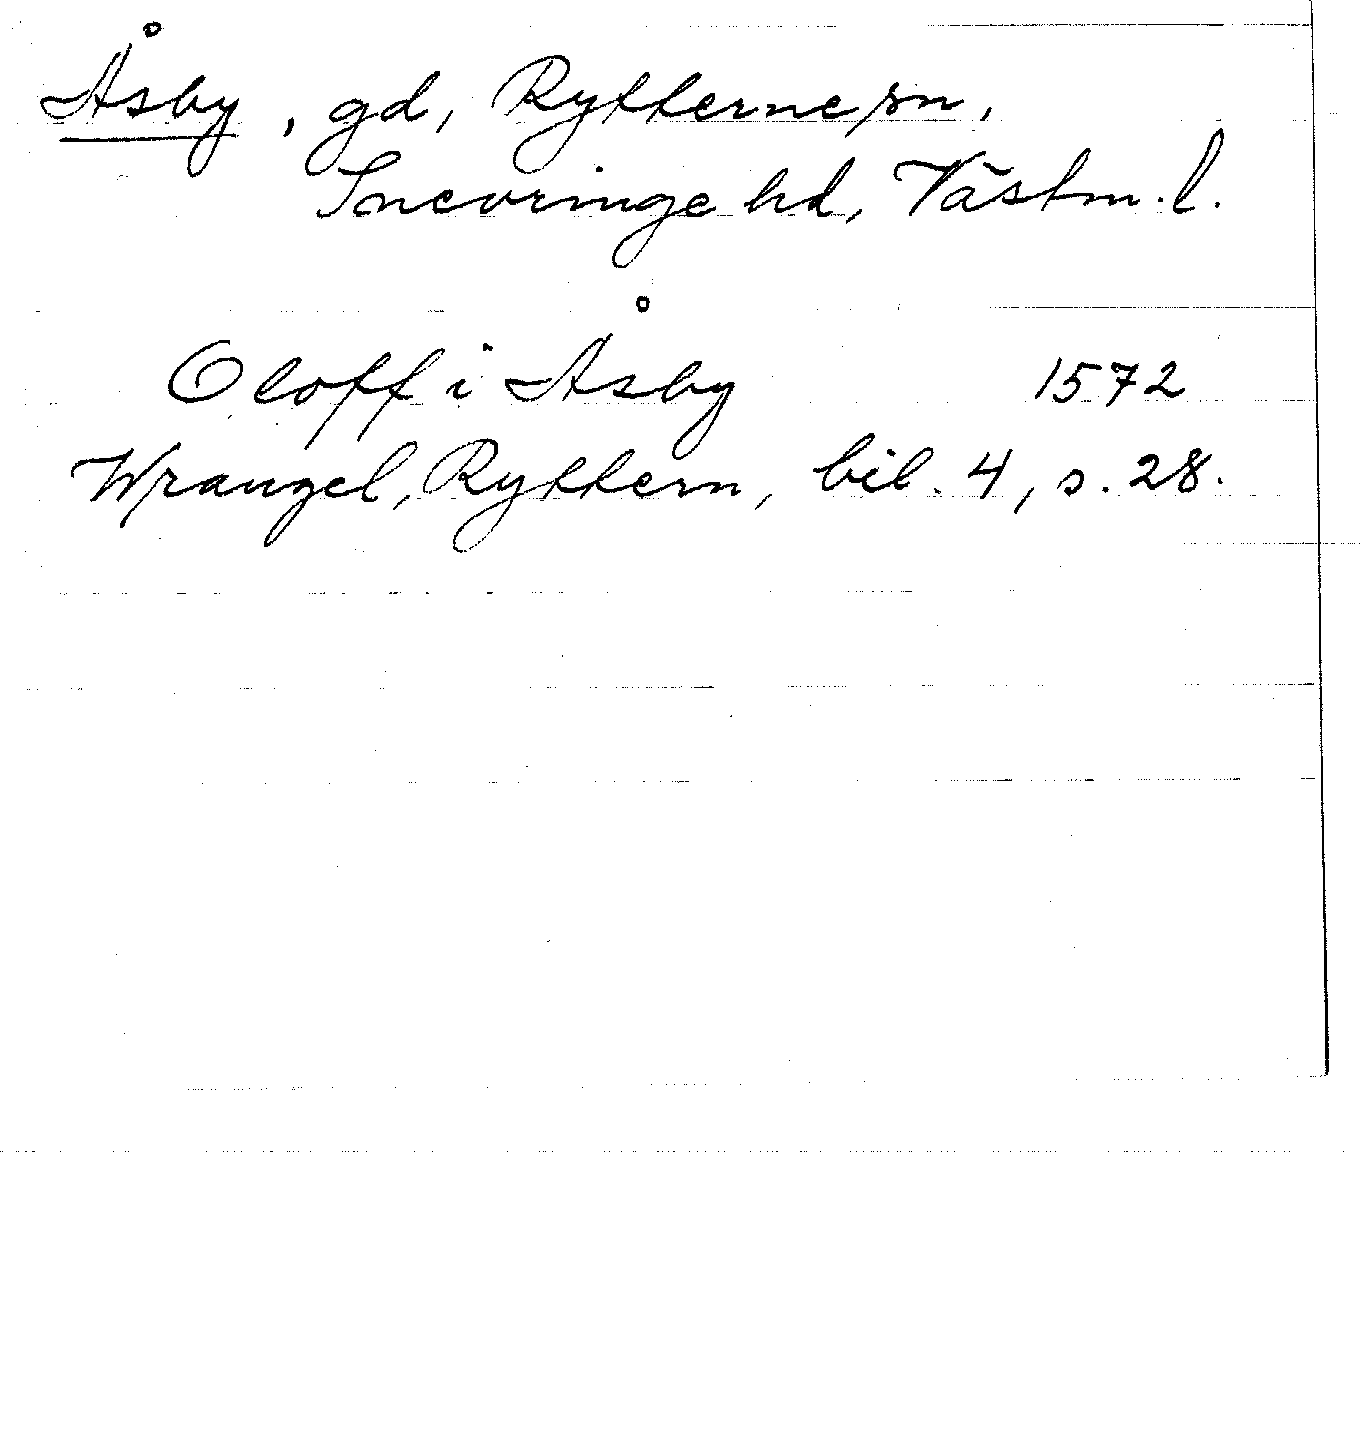 Åsby, gd, Rytterne sn,
Snevringe hd, Västm. l.
Oloff i Åsby 1572
Wrangel, Ryttern, bil. 4, s. 28.